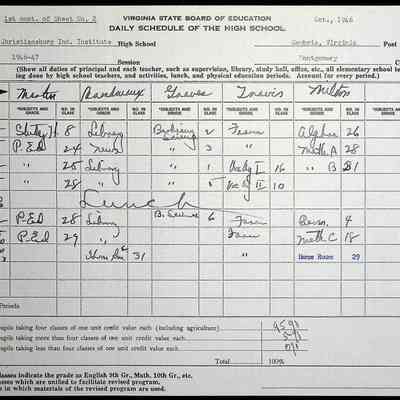 1st cont. of Sheet No. 2 VIRGINIA STATE BOARD OF EDUCATION Oct., 1946
DAILY SCHEDULE OF THE HIGH SCHOOL
Christiansburg Ind. Institute High School Cambria, Virginia Post
1946-47 Session Montgomery C
(Show all duties of principal and each teacher, such as supervision, library, study hall, office, etc., all elementary school
ing done by high school teachers, and activities, lunch, and physical education periods. Account for every period.)
Graves Travis Milton
SUBJECTS AND GRADE NO. IN CLASS SUBJECTS AND GRADE NO. IN CLASS SUBJECTS AND GRADE NO. IN CLASS SUBJECTS AND GRADE NO. IN CLASS SUBJECTS AND GRADE NO. IN CLASS
Study H 8 Library 2 Farm 26
P. Ed 24 3 " Math A 28
" 25 Library " 1 I 16 " B 31
" 28 " " 5 II 10
Lunch
P. Ed 28 Library B. Science 6 Farm 4
P. Ed 29 " Farm Math C 18
31 " Home Room 29
Periods
upils taking four classes of one unit credit value each (including agriculture)
upils taking more than four classes of one unit credit value each
upils taking less than four classes of one unit credit value each
Total 100%
classes indicate the grade as English 9th Gr., Math. 10th Gr., etc.
lasses which are unified to facilitate revised program.
es in which materials of the revised program are used.